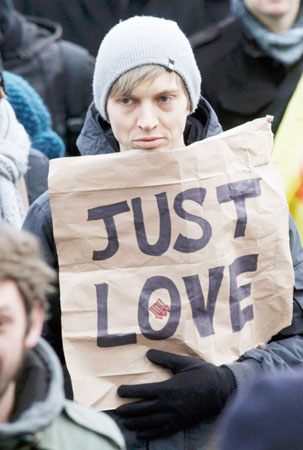 JUST
LOVE